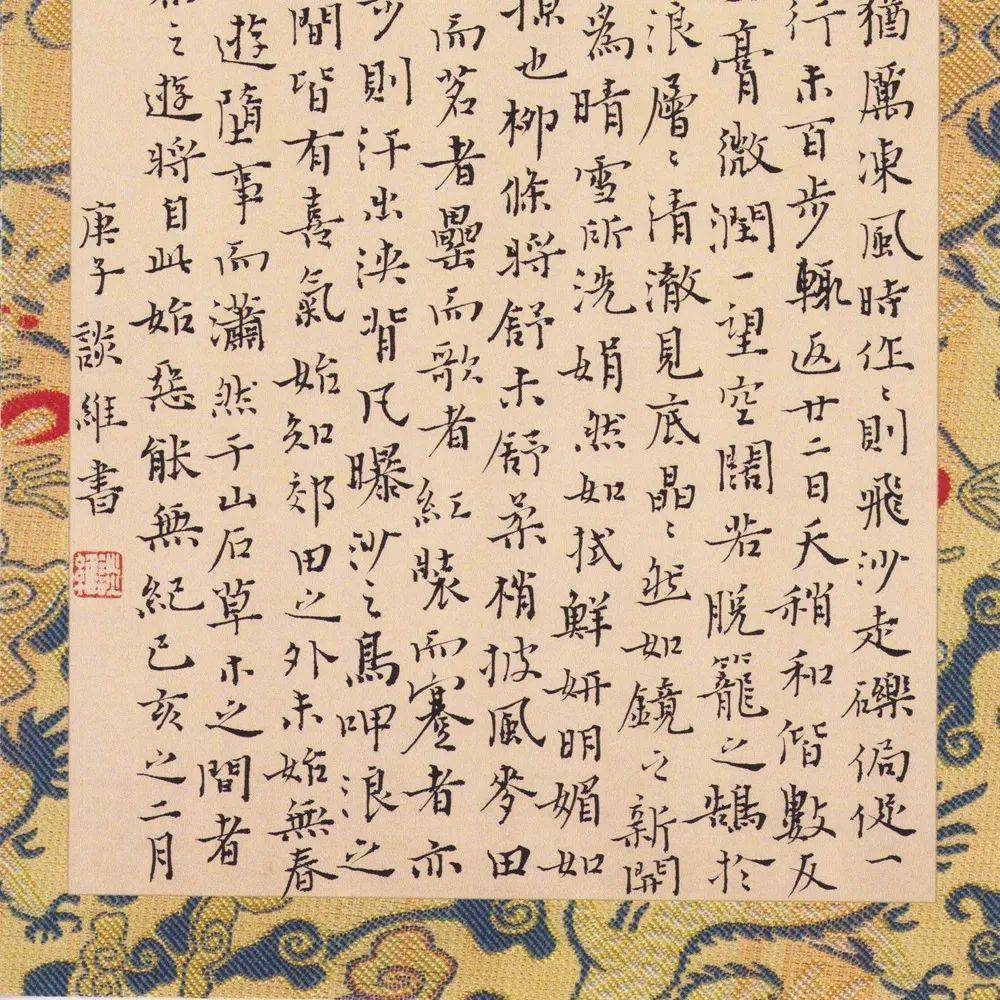 猶厲凍風時作々則飛沙走礫侷促一
行未百步輙返廿二日天稍和偕數友
膏微潤一望空闊若脫籠之鵠於
浪層々清澈見底晶々然如鏡之新開
為晴雪所洗娟然如拭鮮妍明媚如
掠也柳條將舒未舒柔梢披風麥田
而茗者罍而歌者紅裝而蹇者亦
步則汗出浹背凡曝沙之鳥呷浪之
間皆有喜氣始知郊田之外未始無春
遊墮事而瀟然于山石草木之間者
之遊將自此始惡能無紀己亥之二月
庚子談維書